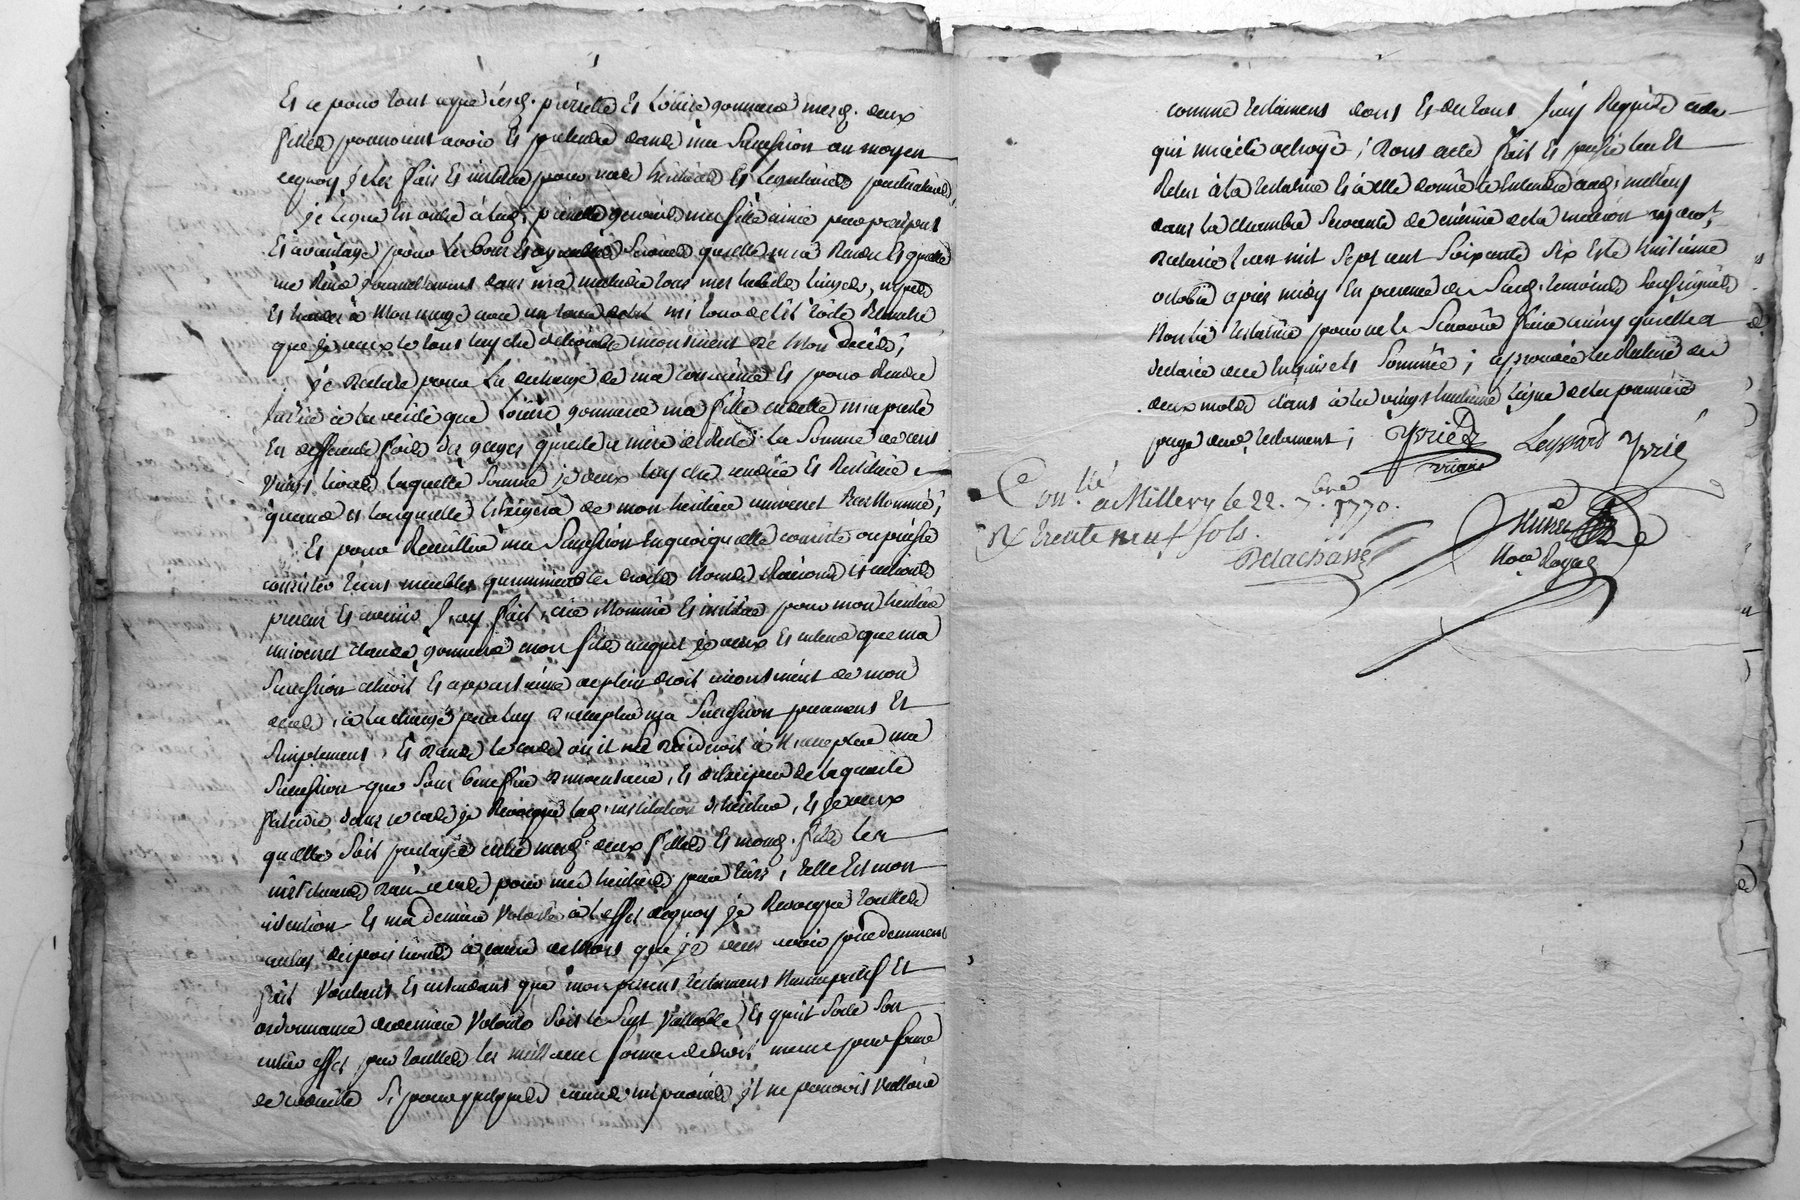 Et ce pour tout ce que lesd. pierrette Et Loüise gonnard mesd. deux
filles pourroient avoir Et pretendre dans ma Succession au moyen
dequoy je les fais Et institue pour mes heritieres Et Legataires particulieres,
je Legue en outre à lad. pierrette gonnard ma fille ainée par preciput
Et avantage pour Les bons Et agreables Services quelle m'a Rendu Et quelle
me Rend journellement dans ma maladie tous mes habits linges, nippes
Et hardes à Mon usage avec un tour de lit mi tour de Lit toile Blanche
que je veux le tout luy être delivré incontinent de Mon décés;
je declare pour La decharge de ma conscience Et pour Rendre
justice à la verité que Loüise gonnard ma fille cadette m'a preté
En differentes fois des gages quelle a mérité La Somme de cent
vingt livres laquelle Somme je veux luy être rendue Et Restituée
quand et lorsquelle L'exigera de mon heritier universel Bas Nommé;
Et pour Recueillir ma Succession En quoi quelle consiste ou puisse
consister tant meubles qu'immeubles droits Noms Raisons et actions
presens Et avenir J'ay fait, crée Nommé Et institué pour mon heritier
universel claude gonnard mon fils auquel je veux Et entend que ma
Succession advient Et appartienne de plein droit incontinent de mon
décés, à la charge par luy d'accepter ma Succession purement Et
Simplement, Et dans le cas où il ne voudroit à N'accepter ma
Succession que Sous benefice d'inventaire, Et distraction de la quarte
falcidie, dans ce cas je Revoque lad. institution d'heritier, Et je veux
quelle Soit partagée entre mesd. deux filles Et mond. fils les
instituant dans ce cas pour mes heritiers par tiers, telle Est mon
intention Et ma derniere Volonté à L'effet dequoy je Revoque toutes
autres dispositions à cause de Mort que je peux avoir precedemment
fait Voulant Et entendant que mon present testament Nuncupatif Et
ordonnance de derniere Volonté Soit le Seul Vallable, Et qu'il Sorte Son
entier effet par toutes les meilleures formes de droit meme par forme
de codicille Si pour quelques causes imprevües il ne pouvoit Valloir
comme testament dont Et du tout J'ay Requis acte
qui m'a été octroyé; dont acte fait Et passé leu Et
Releu à la testatrice Et à elle donné à Entendre aud. millery
dans la chambre Servante de cuisine de la maison
Notaire L'an mil Sept cent Soixante Six Et le huitième
octobre après midy En presence des Susd. temoins Soussignés
Non la testatrice pour ne le Scavoir faire ainsy quelle a
declaré de ce Enquise Et Sommée; approuvée les Ratures de
deux mots dans à la vingt huitième Ligne de la premiere
page dud. testament;
Yvrié Lespard Yvrié
Con.llé à Millery le 22. 7.bre 1770.
R trente neuf sols.
Delachassé
No.re Royal